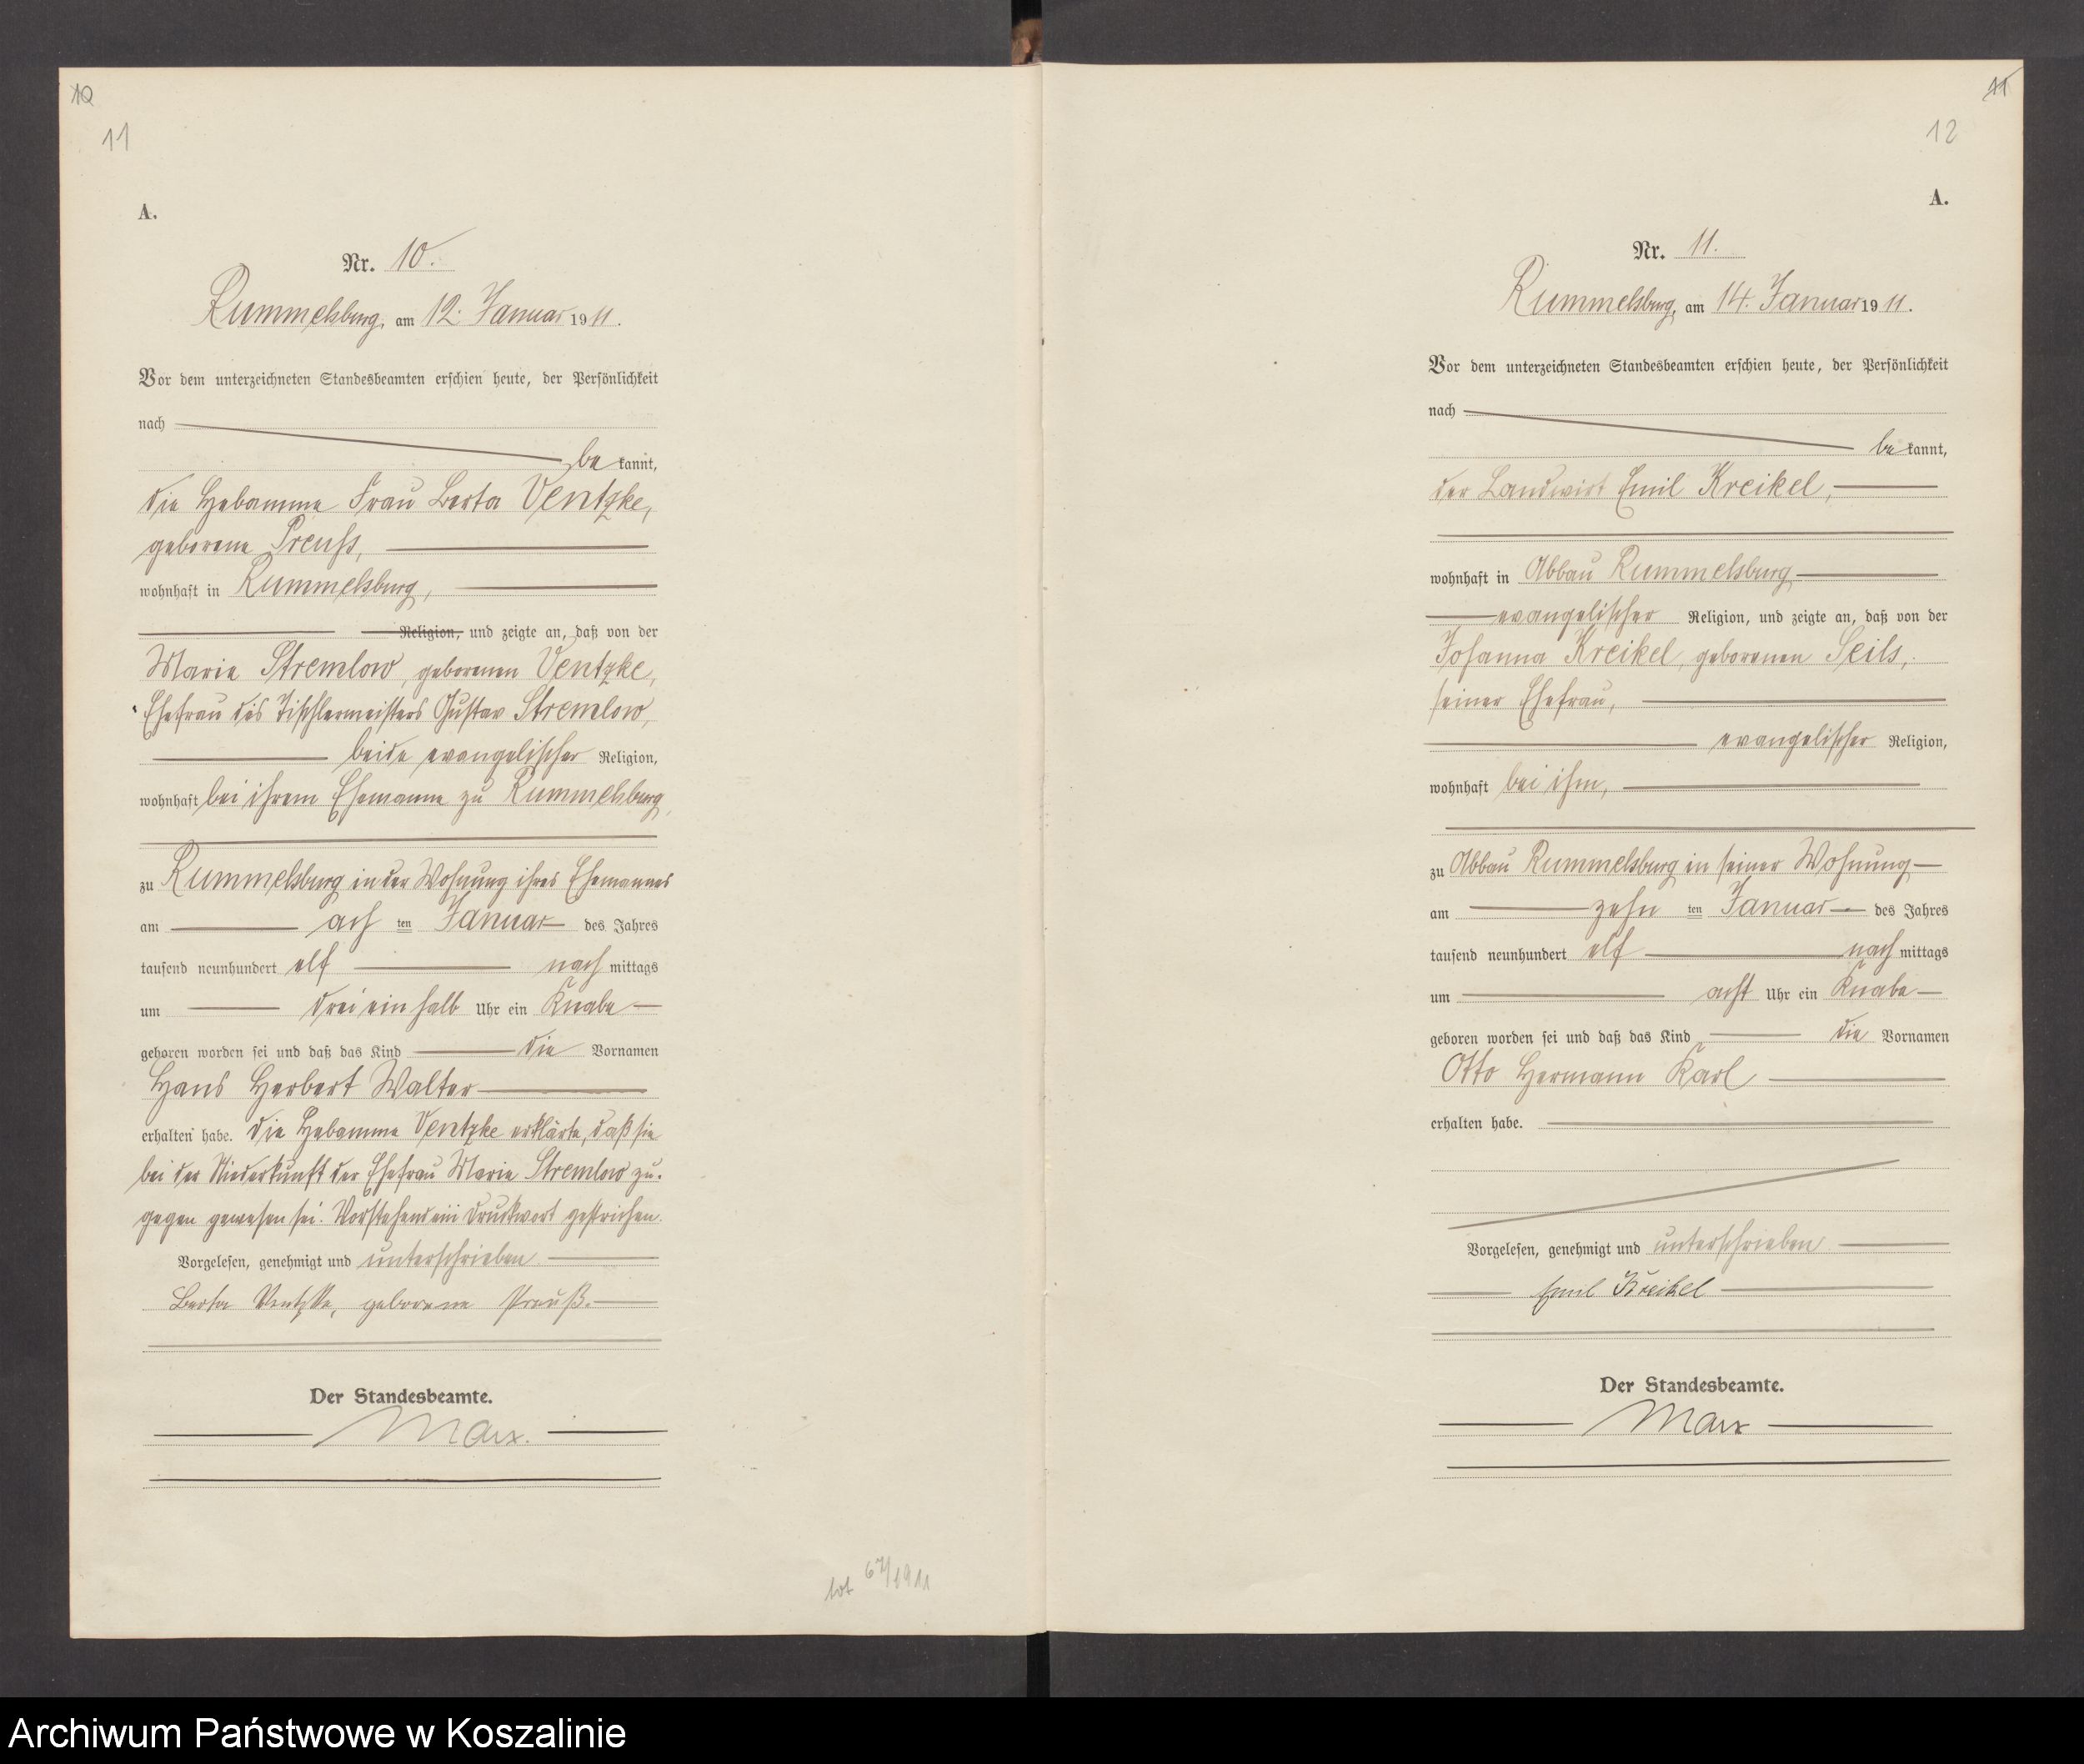 10
11
A.
Nr. 10.
Rummelsburg, am 12. Januar 1911.
Vor dem unterzeichneten Standesbeamten erschien heute, der Persönlichkeit
nach
be kannt,
die Hebamme Frau Berta Ventzke,
geborene Preuß,
wohnhaft in Rummelsburg,
Religion, und zeigte an, daß von der
Marie Stremlow, geborenen Ventzke,
Ehefrau des Tischlermeisters Gustav Stremlow,
beide evangelischer Religion,
wohnhaft bei ihrem Ehemanne zu Rummelsburg,
zu Rummelsburg in der Wohnung ihres Ehemannes
am ach ten Januar des Jahres
tausend neunhundert elf nach mittags
um drei ein halb Uhr ein Knabe
geboren worden sei und daß das Kind die Vornamen
Hans Herbert Walter
erhalten habe. Die Hebamme Ventzke erklärte, daß sie
bei der Niederkunft der Ehefrau Marie Stremlow zu-
gegen gewesen sei. Vorstehend ein Druckwort gestrichen.
Vorgelesen, genehmigt und unterschrieben
Berta Ventzke, geborene Preuß.
Der Standesbeamte.
Marx.
tot 67/1911
11
12
A.
Nr. 11.
Rummelsburg, am 14. Januar 1911.
Vor dem unterzeichneten Standesbeamten erschien heute, der Persönlichkeit
nach
be kannt,
der Landwirt Emil Kreikel,
wohnhaft in Abbau Rummelsburg
evangelischer Religion, und zeigte an, daß von der
Johanna Kreikel, geborenen Seils,
seiner Ehefrau,
evangelischer Religion,
wohnhaft bei ihm,
zu Abbau Rummelsburg in seiner Wohnung
am zehn ten Januar des Jahres
tausend neunhundert elf nach mittags
um acht Uhr ein Knabe
geboren worden sei und daß das Kind die Vornamen
Otto Hermann Karl
erhalten habe.
Vorgelesen, genehmigt und unterschrieben
Emil Kreikel
Der Standesbeamte.
Marx
Archiwum Państwowe w Koszalinie